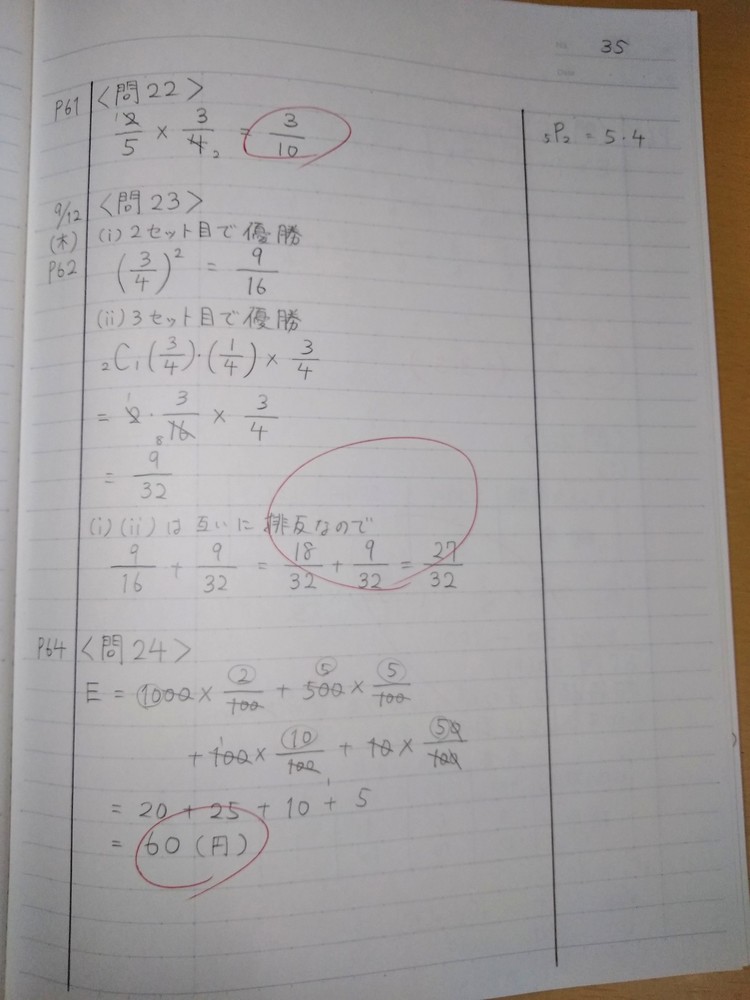 35
P61 <問22>
2/5 × 3/4 2 = 3/10
5P2 = 5・4
9/12 <問23>
(木) (i) 2セット目で優勝
P62 (3/4)^2 = 9/16
(ii) 3セット目で優勝
2C1 (3/4)・(1/4) × 3/4
= 2・3/16 × 3/4
= 9/32
(i) (ii) は互いに排反なので
9/16 + 9/32 = 18/32 + 9/32 = 27/32
P64 <問24>
E = 1000 × 2/100 + 500 × 5/100
+ 100 × 10/100 + 10 × 50/100
= 20 + 25 + 10 + 5
= 60 (円)